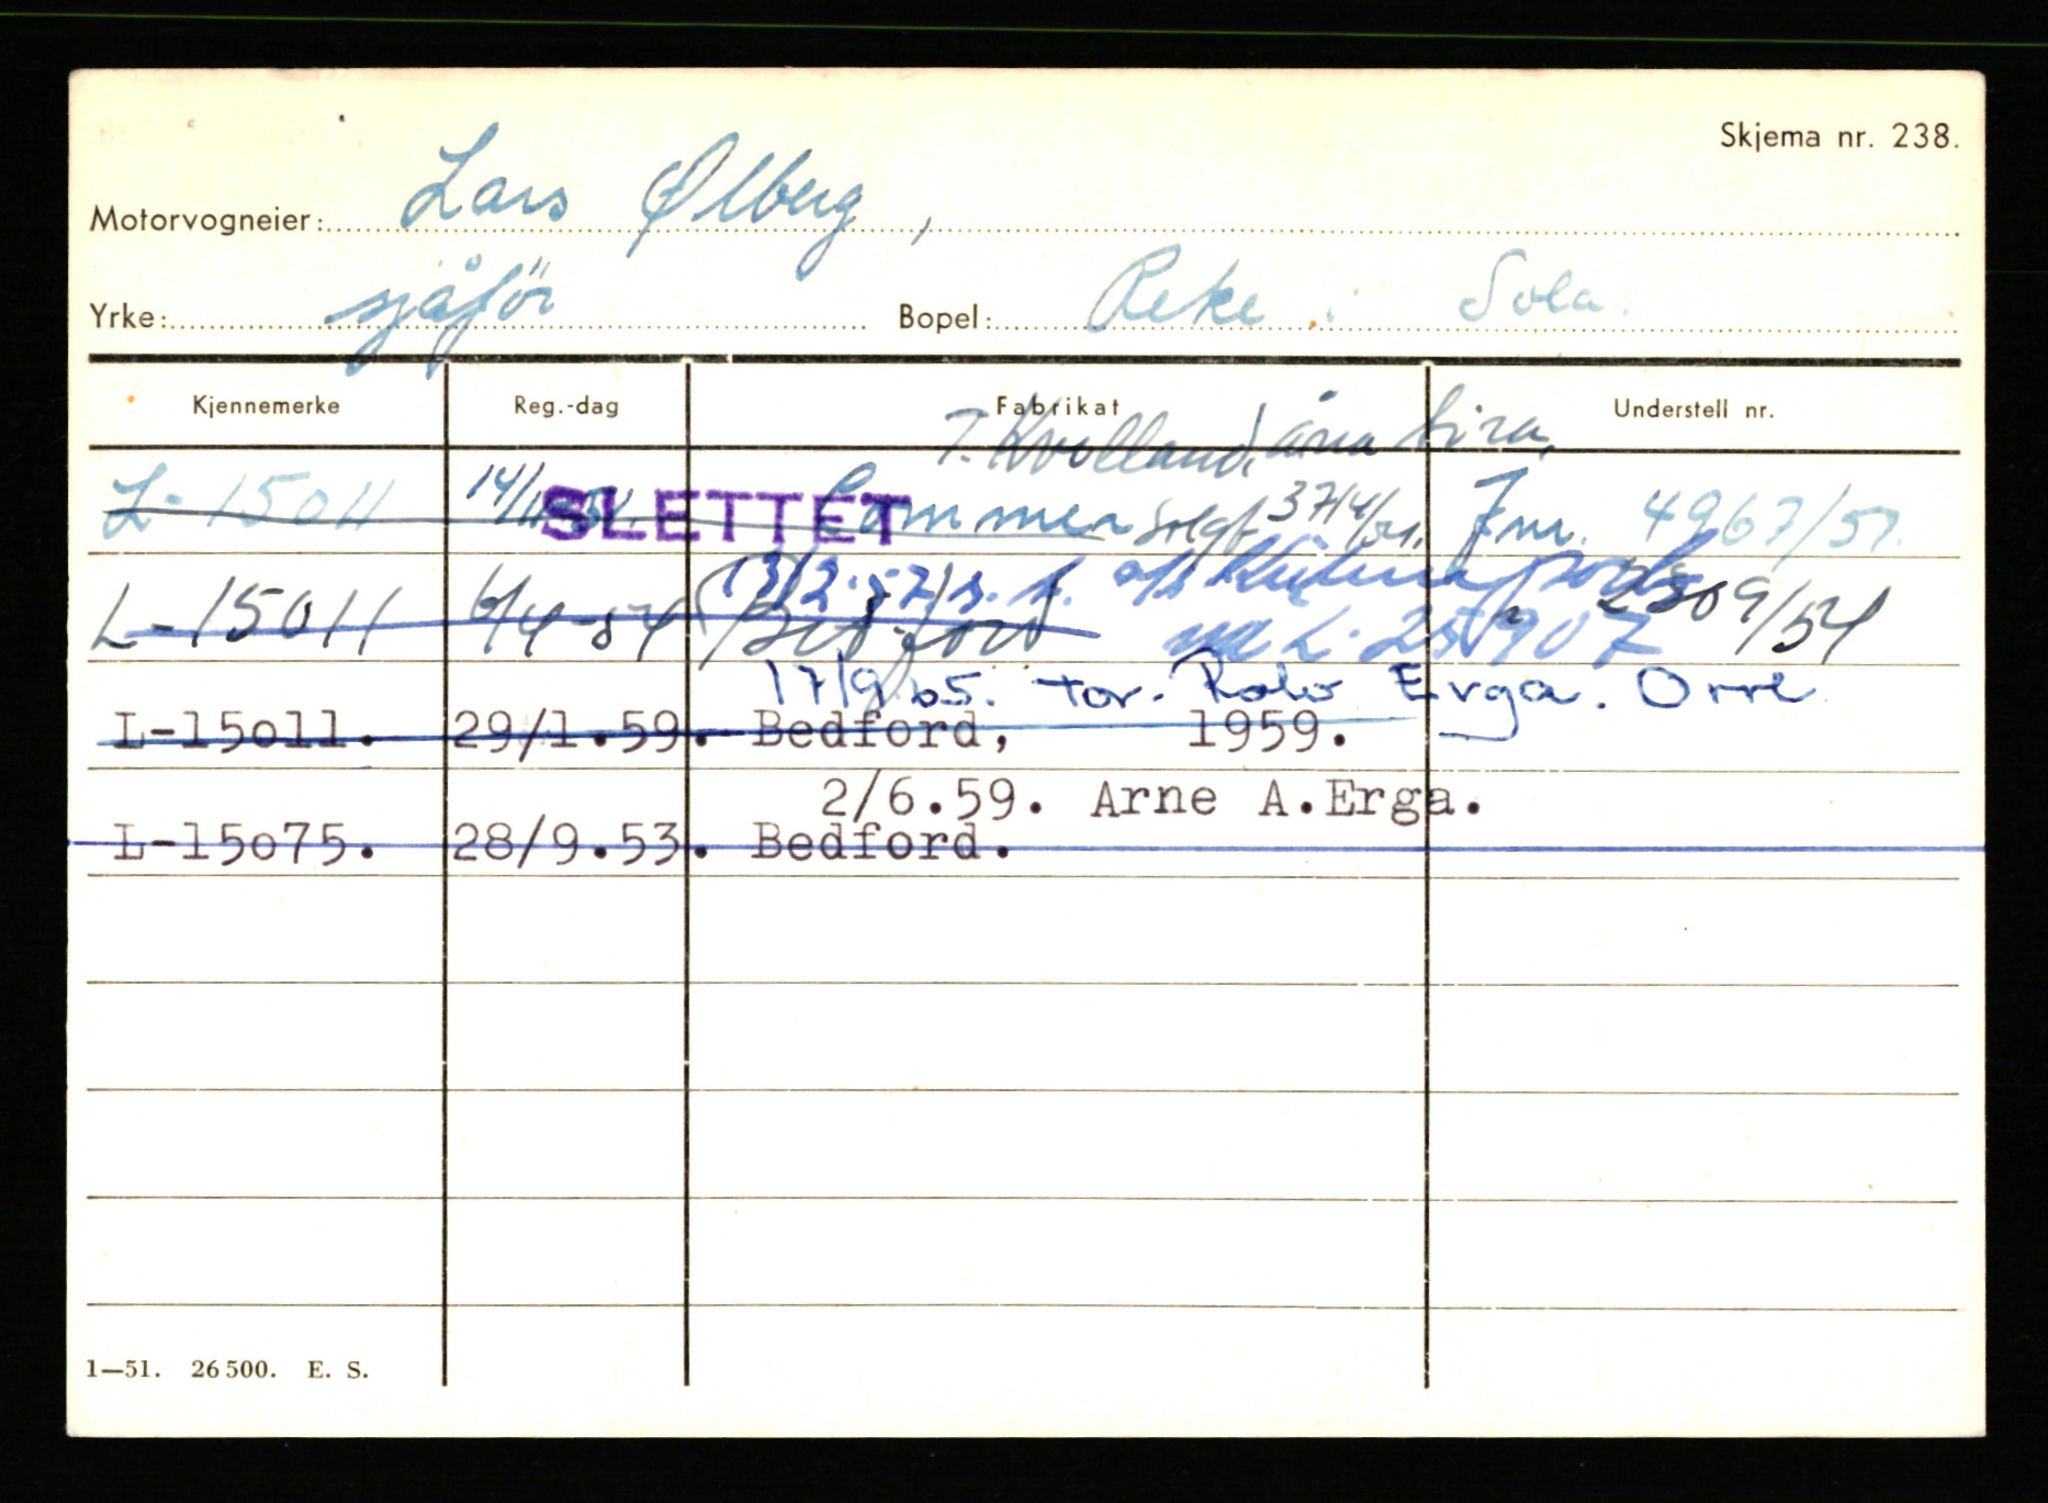 Skjema nr. 238.
Motorvogneier: Lars Ølberg,
Yrke: sjåför Bopel: Reke i Sola.
Kjennemerke Reg.-dag Fabrikat Understell nr.
T. Kvolland, åna Sira,
L-15011 14/11 SLETTET Commer solgt Jnr. 4967/51.
13/2.57 s. f. a/s
L-15011 6/4-54 Bedford L. 2309/54
17/9.65. tor. Rolv Erga. Orre
L-15o11. 29/1.59. Bedford, 1959.
2/6.59. Arne A.Erga.
L-15o75. 28/9.53. Bedford.
1—51. 26 500. E. S.